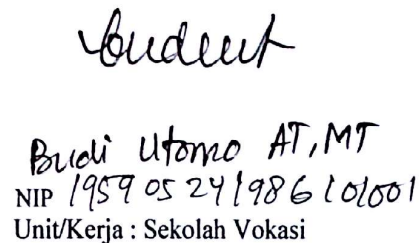 Budi Utomo AT, MT
NIP 195905241986101001
Unit/Kerja : Sekolah Vokasi